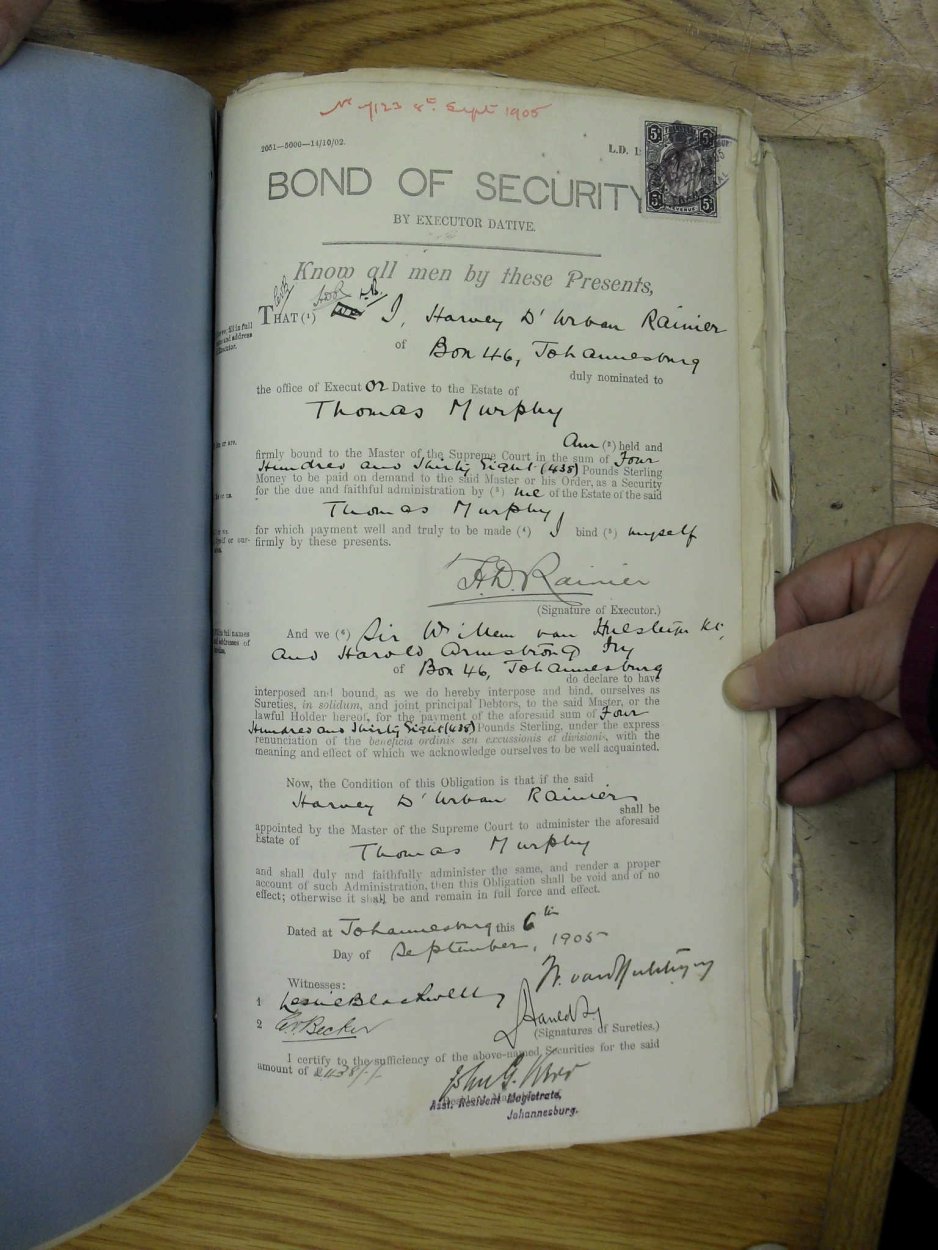 No 7123 8th Sept 1905
2051—5000—14/10/02.
L.D. 1
BOND OF SECURITY
BY EXECUTOR DATIVE.
Know all men by these Presents,
THAT (1) I, Harvey D'Urban Rainier
of Box 46, Johannesburg
duly nominated to
the office of Execut or Dative to the Estate of
Thomas Murphy
Am (2) held and
firmly bound to the Master of the Supreme Court in the sum of Four
Hundred and Thirty Eight (438) Pounds Sterling
Money to be paid on demand to the said Master or his Order, as a Security
for the due and faithful administration by (3) me of the Estate of the said
Thomas Murphy
for which payment well and truly to be made (4) I bind (5) myself
firmly by these presents.
H.D. Rainier
(Signature of Executor.)
And we (6) Sir Willem van Hulsteyn Kt,
and Harold Armstrong Fry
of Box 46, Johannesburg
do declare to have
interposed and bound, as we do hereby interpose and bind, ourselves as
Sureties, in solidum, and joint principal Debtors, to the said Master, or the
lawful Holder hereof, for the payment of the aforesaid sum of Four
Hundred and Thirty Eight (438) Pounds Sterling, under the express
renunciation of the beneficia ordinis seu excussionis et divisionis, with the
meaning and effect of which we acknowledge ourselves to be well acquainted.
Now, the Condition of this Obligation is that if the said
Harvey D'Urban Rainier
shall be
appointed by the Master of the Supreme Court to administer the aforesaid
Estate of Thomas Murphy
and shall duly and faithfully administer the same, and render a proper
account of such Administration, then this Obligation shall be void and of no
effect; otherwise it shall be and remain in full force and effect.
Dated at Johannesburg this 6th
Day of September, 1905
W. van Hulsteyn
Witnesses:
1 Leslie Blackwell
Harold Fry
2 C. Becker
(Signatures of Sureties.)
I certify to the sufficiency of the above-named Securities for the said
amount of £438/-/-
John G.
Asst. Resident Magistrate,
Johannesburg.